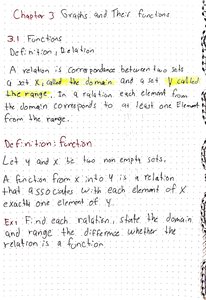 Chapter 3 Graphs and Their functions
3.1 Functions
Definition: Relation
A relation is correspondance between two sets
a set X, called the domain and a set Y called
the range. In a relation each element from
the domain corresponds to at least one Element
from the range.
Definition: function
Let y and x be two non empty sets.
A function from x into Y is a relation
that associates with each element of X
exactly one element of Y.
Ex: Find each ralation, state the domain
and range the difference. Whether the
relation is a function